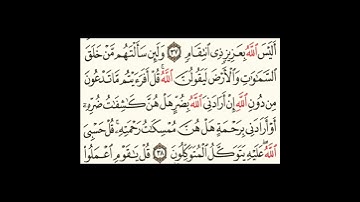 أَلَيْسَ ٱللَّهُ بِعَزِيزٍ ذِى ٱنتِقَامٍ ٣٧ وَلَئِن سَأَلْتَهُم مَّنْ خَلَقَ
ٱلسَّمَـٰوَٰتِ وَٱلْأَرْضَ لَيَقُولُنَّ ٱللَّهُ ۚ قُلْ أَفَرَءَيْتُم مَّا تَدْعُونَ
مِن دُونِ ٱللَّهِ إِنْ أَرَادَنِىَ ٱللَّهُ بِضُرٍّ هَلْ هُنَّ كَـٰشِفَـٰتُ ضُرِّهِۦٓ
أَوْ أَرَادَنِى بِرَحْمَةٍ هَلْ هُنَّ مُمْسِكَـٰتُ رَحْمَتِهِۦ ۚ قُلْ حَسْبِىَ
ٱللَّهُ ۖ عَلَيْهِ يَتَوَكَّلُ ٱلْمُتَوَكِّلُونَ ٣٨ قُلْ يَـٰقَوْمِ ٱعْمَلُوا۟